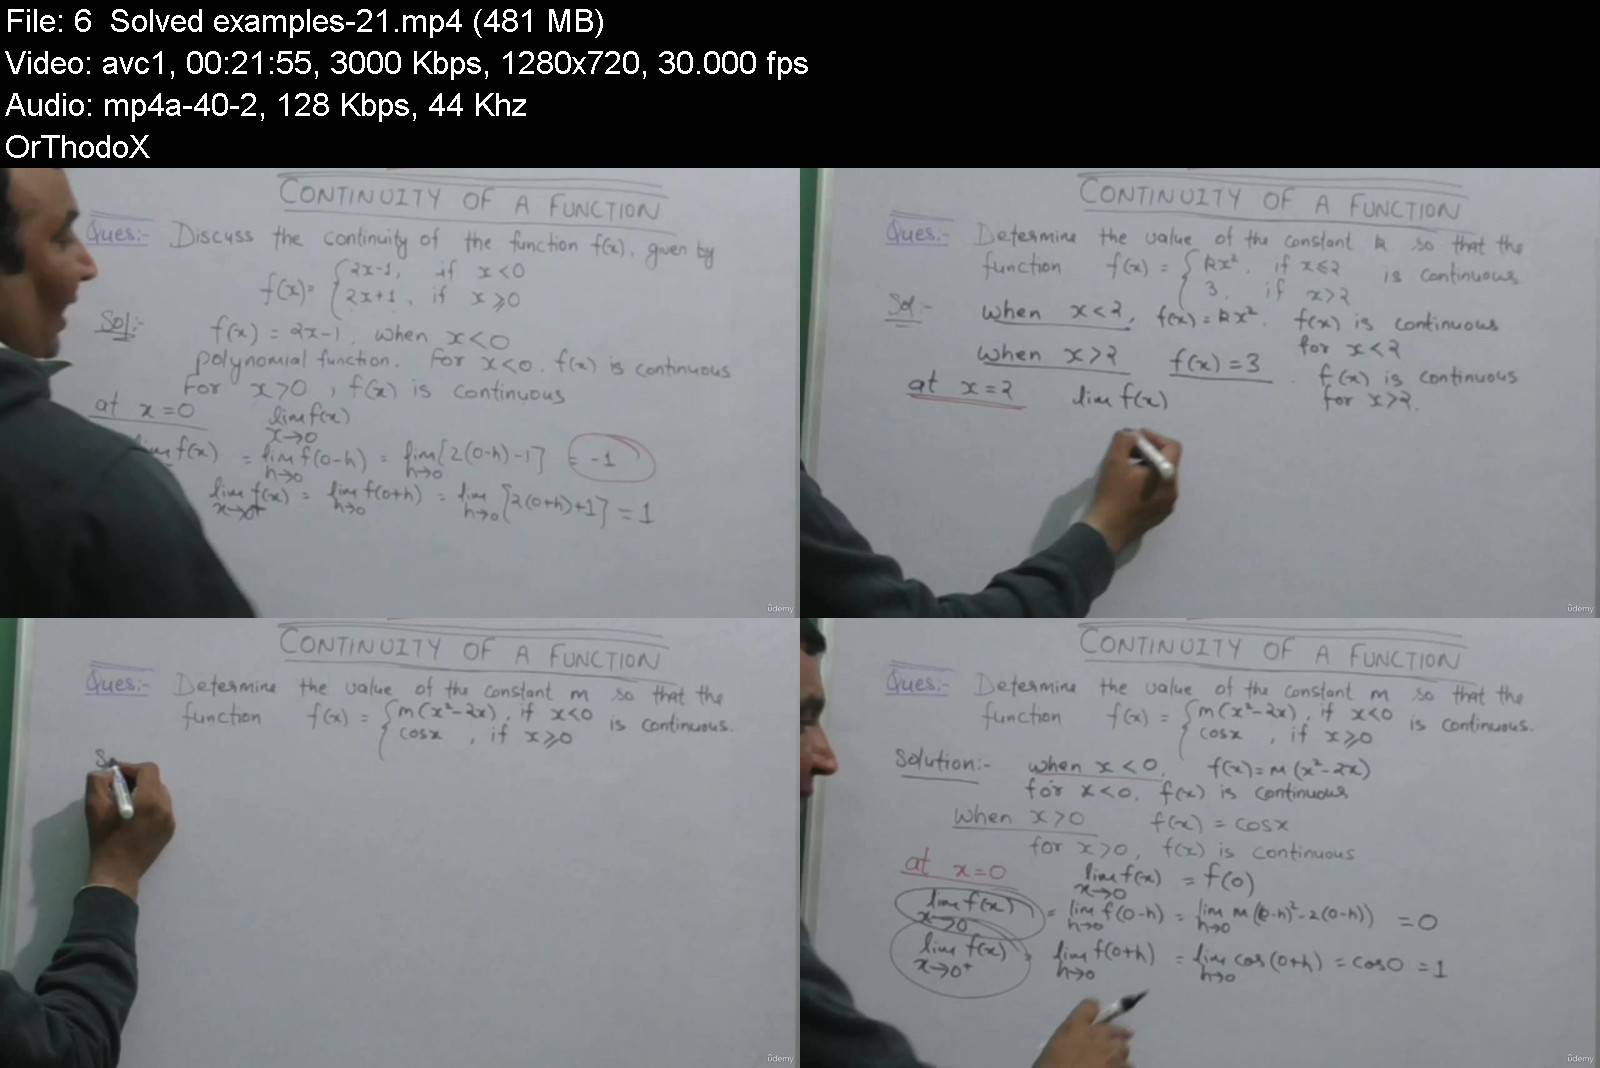 File: 6  Solved examples-21.mp4 (481 MB)
Video: avc1, 00:21:55, 3000 Kbps, 1280x720, 30.000 fps
Audio: mp4a-40-2, 128 Kbps, 44 Khz
OrThodoX
CONTINUITY OF A FUNCTION
Ques:- Discuss the continuity of the function f(x), given by
f(x)= { 2x-1, if x<0
2x+1, if x⩾0
Sol:- f(x) = 2x-1, when x<0
polynomial function. For x<0, f(x) is continuous
For x>0, f(x) is continuous
at x=0 lim f(x)
x→0
lim f(x) = lim f(0-h) = lim [2(0-h)-1] = -1
h→0 h→0
lim f(x) = lim f(0+h) = lim [2(0+h)+1] = 1
x→0+ h→0 h→0
udemy
CONTINUITY OF A FUNCTION
Ques:- Determine the value of the constant k so that the
function f(x) = { kx², if x⩽2 is continuous
3, if x>2
Sol:- when x<2, f(x) = kx². f(x) is continuous
for x<2
when x>2 f(x)=3. f(x) is continuous
for x>2.
at x=2 lim f(x)
udemy
CONTINUITY OF A FUNCTION
Ques:- Determine the value of the constant m so that the
function f(x) = { m(x²-2x), if x<0 is continuous.
cosx, if x⩾0
S
udemy
CONTINUITY OF A FUNCTION
Ques:- Determine the value of the constant m so that the
function f(x) = { m(x²-2x), if x<0 is continuous.
cosx, if x⩾0
Solution:- when x<0, f(x)=m(x²-2x)
for x<0, f(x) is continuous
when x>0 f(x) = cosx
for x>0, f(x) is continuous
at x=0 lim f(x) = f(0)
x→0
lim f(x) = lim f(0-h) = lim m((0-h)²-2(0-h)) = 0
x→0 h→0 h→0
lim f(x) = lim f(0+h) = lim cos(0+h) = cos0 = 1
x→0+ h→0 h→0
udemy